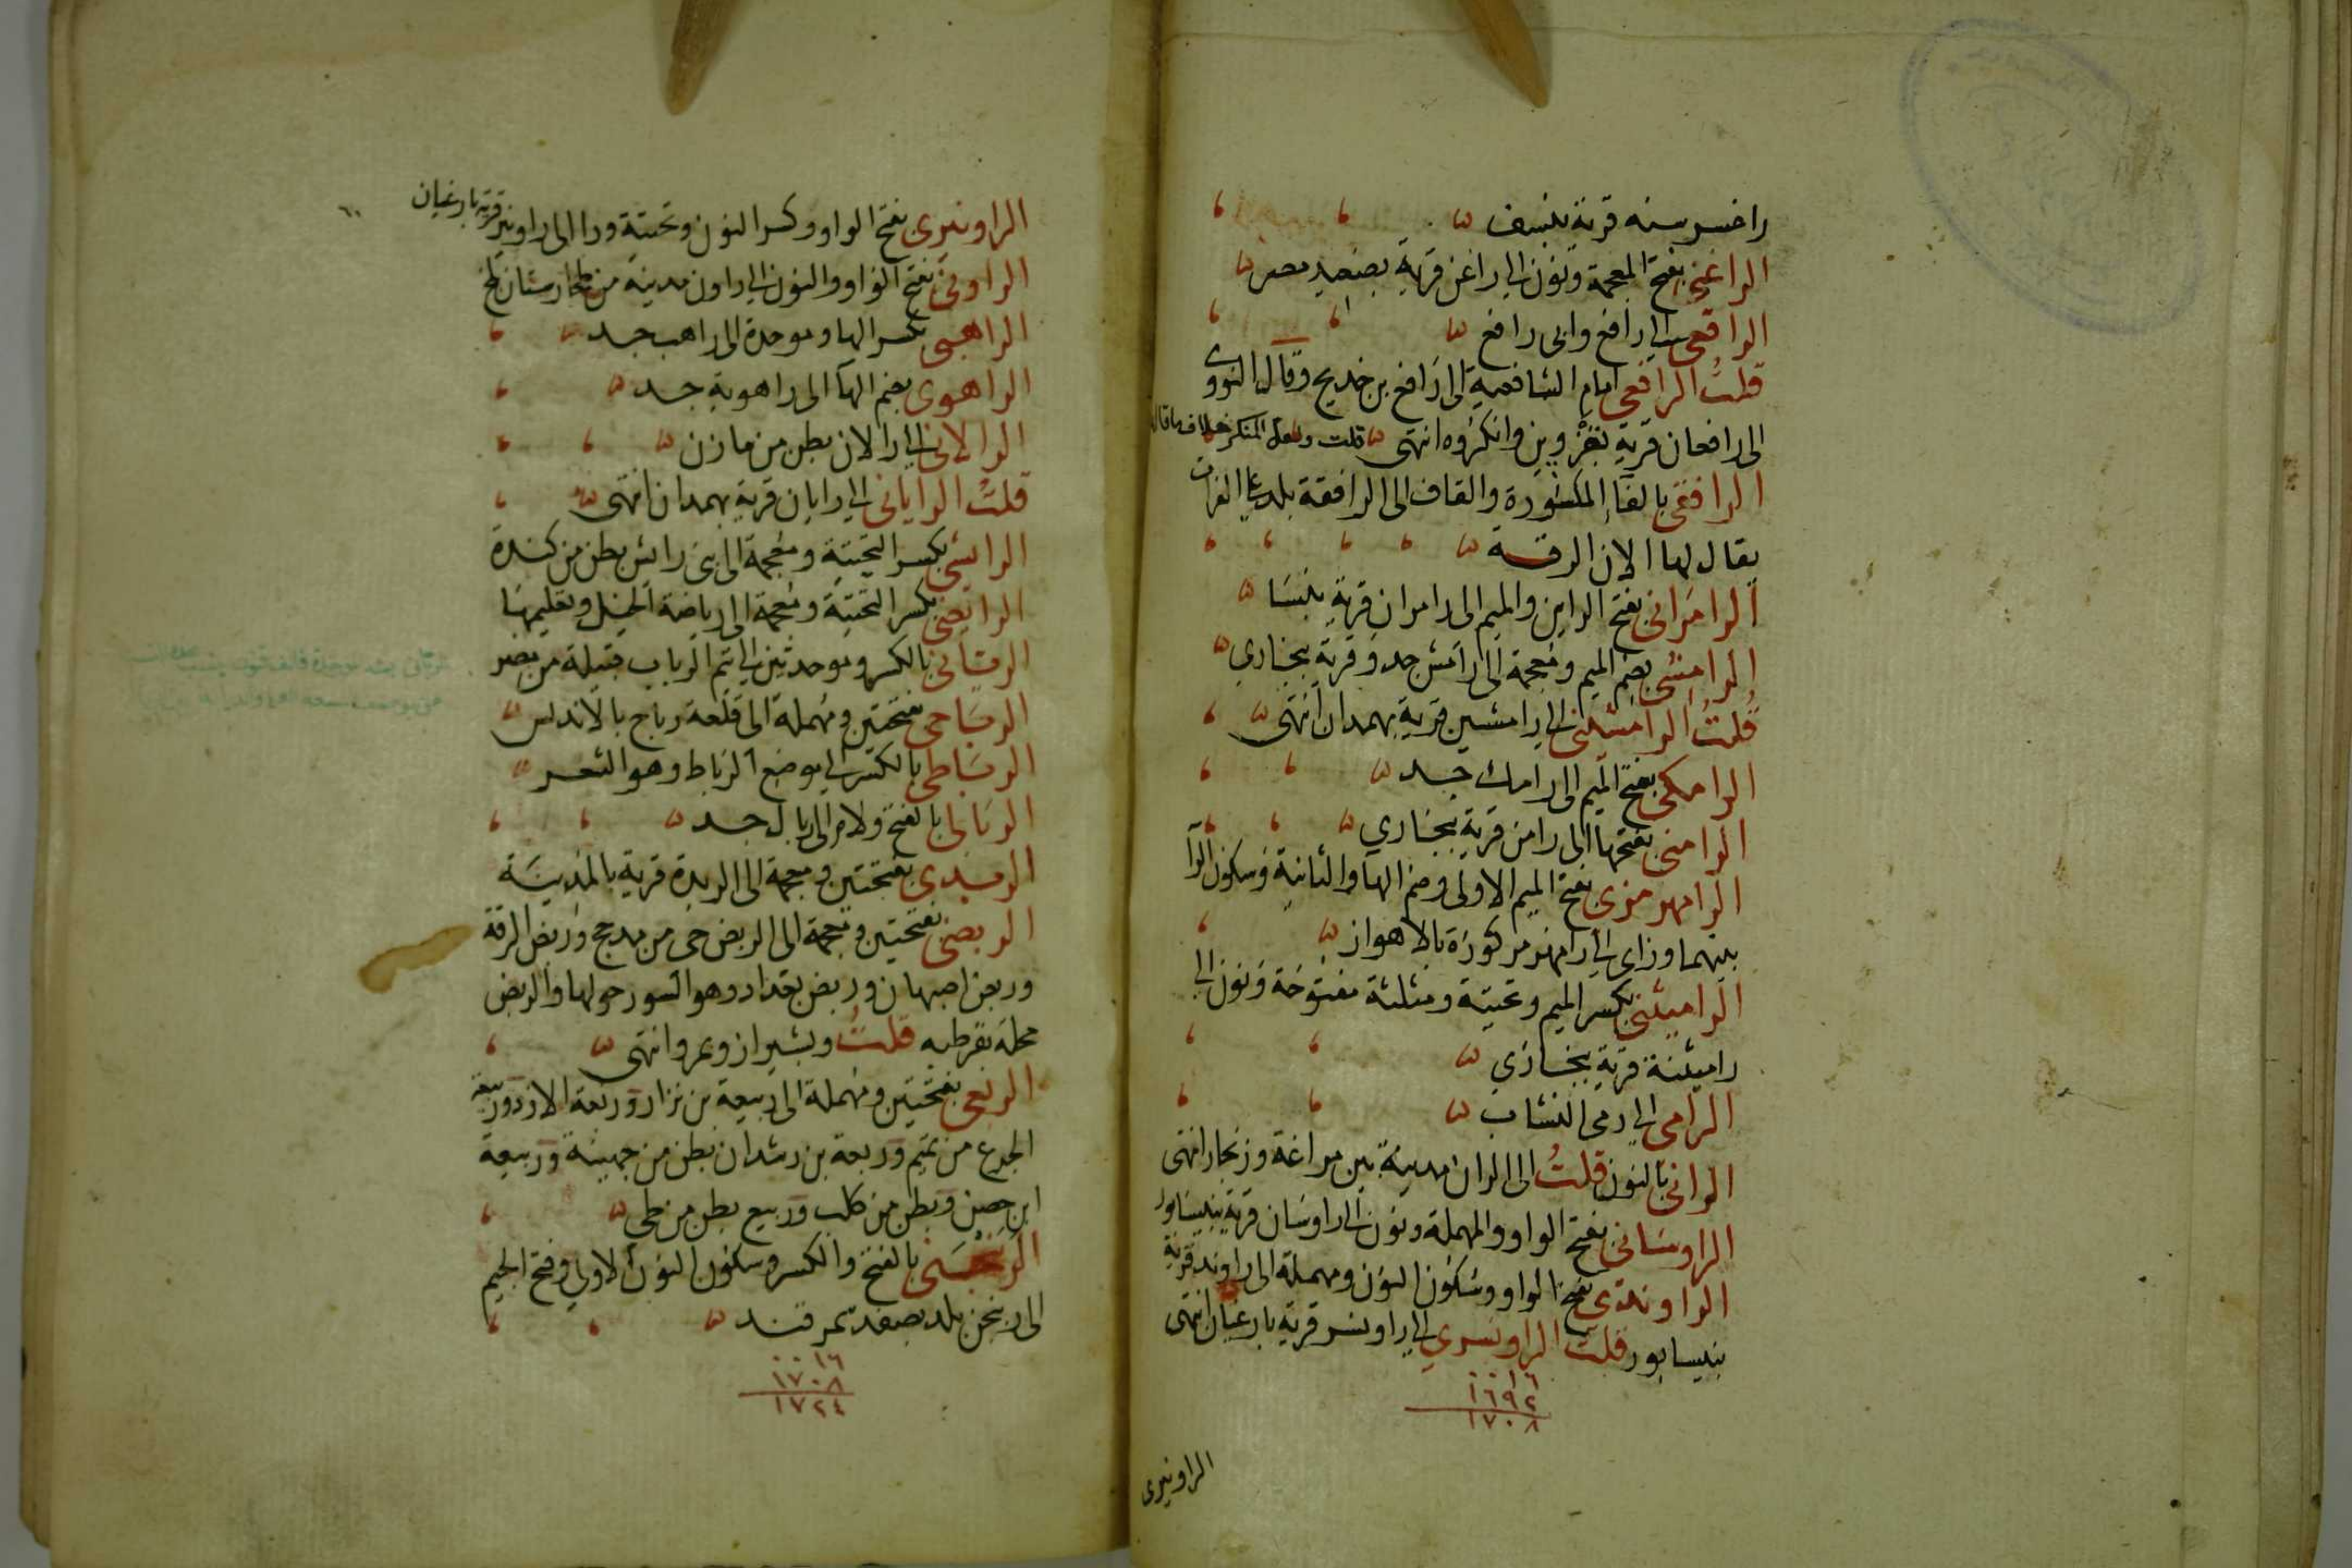 راخسرسنه قرية بنسف
الراغني بفتح المعجمة ونون الى راغن قرية بصعيد مصر
الرافعي الى رافع وابى رافع
قلت الرافعي امام الشافعية الى رافع بن خديج وقال النووى
الى رافعان قرية بقزوين وانكروه انتهى قلت ولعل المنكر خلاف ما قال
الرافقي بالفاء المكسورة والقاف الى الرافقة بلد على الفرات
يقال لها الان الرقة
الرامراني بفتح الراين والميم الى رامران قرية بنسا
الرامشي بضم الميم ومعجمة الى رامش جد وقرية ببخارى
قلت الرامشيني الى رامشين قرية بهمدان انتهى
الرامكي بفتح الميم الى رامك جد
الرامني بفتحها الى رامن قرية ببخارى
الرامهرمزى بفتح الميم الاولى وضم الها والثانية وسكون الرا
بينهما وزاى الى رامهرمز كورة بالاهواز
الراميثني بكسر الميم وتحتية ومثلثة مفتوحة ونون الى
راميثنة قرية ببخارى
الرامى الى رمى النشاب
الرانى بالنون قلت الى الران مدينة بين مراغة وزنجان انتهى
الراوسانى بفتح الواو والمهملة ونون الى راوسان قرية بنيسابور
الراوندى بفتح الواو وسكون النون ومهملة الى راوند قرية
بنيسابور قلت الراونسرى الى راونسر قرية بارغيان انتهى
١٦
١٦٩٢
١٧٠٨
الراونيرى
الراونيرى بفتح الواو وكسر النون وتحتية ورا الى راونير قرية بارغيان
الراونى بفتح الواو والنون الى راون مدينة من طخارستان بلخ
الراهبى بكسر الها وموحدة الى راهب جد
الراهوى بضم الها الى راهوية جد
الرالانى الى رالان بطن من مازن
قلت الرايانى الى رايان قرية بهمدان انتهى
الرايشى بكسر التحتية ومعجمة الى بنى رائش بطن من كندة
الرايضى بكسر التحتية ومعجمة الى رياضة الخيل وتعليمها
الربابى بالكسر وموحدتين الى تيم الرباب قبيلة من مضر
الرباحى بفتحتين ومهملة الى قلعة رباح بالاندلس
الرباطى بالكسر الى موضع الرباط وهو الثغر
الربالى بالفتح ولام الى ربال جد
الربذى بفتحتين ومعجمة الى الربذة قرية بالمدينة
الربضى بفتحتين ومعجمة الى الربض حى من مذحج وربض الرقة
وربض اصبهان وربض بغداد وهو السور حولها والربض
محلة بقرطبه قلت وبشيراز ومرو انتهى
الربعى بفتحتين ومهملة الى ربيعة بن نزار وربعة الازد وربيعة
الجوع من تميم وربعة بن رشدان بطن من جهينة وربيعة
ابن حصن وبطن من كلب وربيع بطن من طى
الربنجنى بالفتح والكسر وسكون النون الاولى وفتح الجيم
الى ربنجن بلد بصغد سمرقند
١٦
١٧٠٨
١٧٢٤